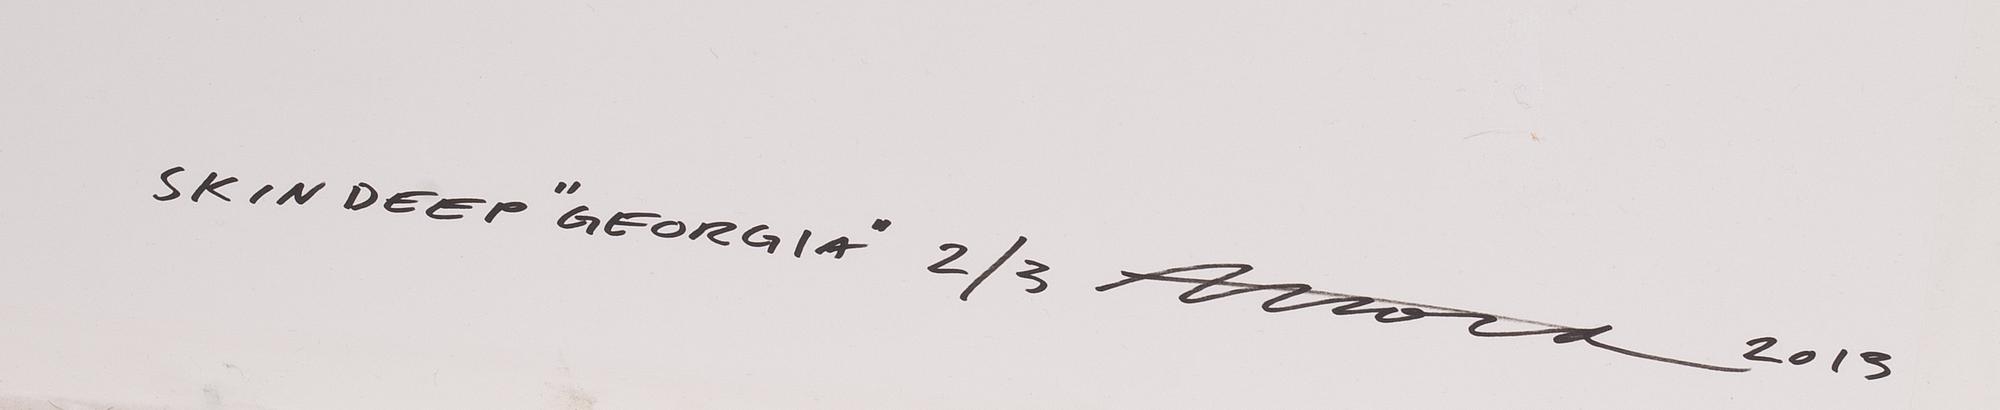 SKIN DEEP "GEORGIA" 2/3 2013